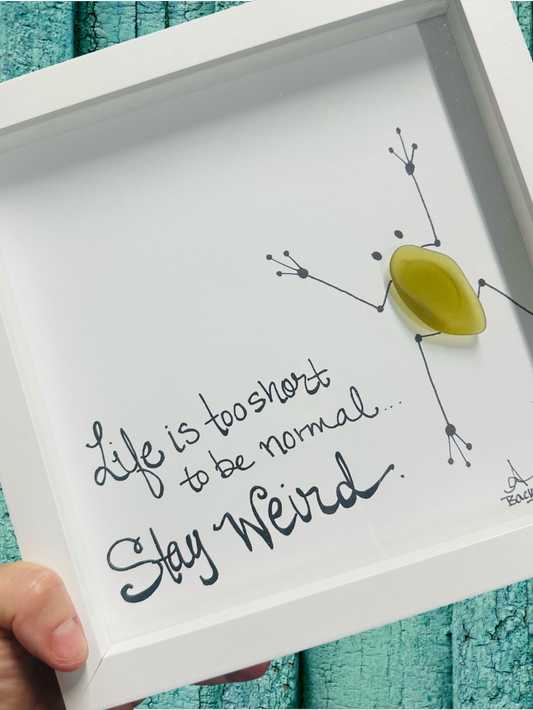 Life is too short
to be normal...
Stay Weird.